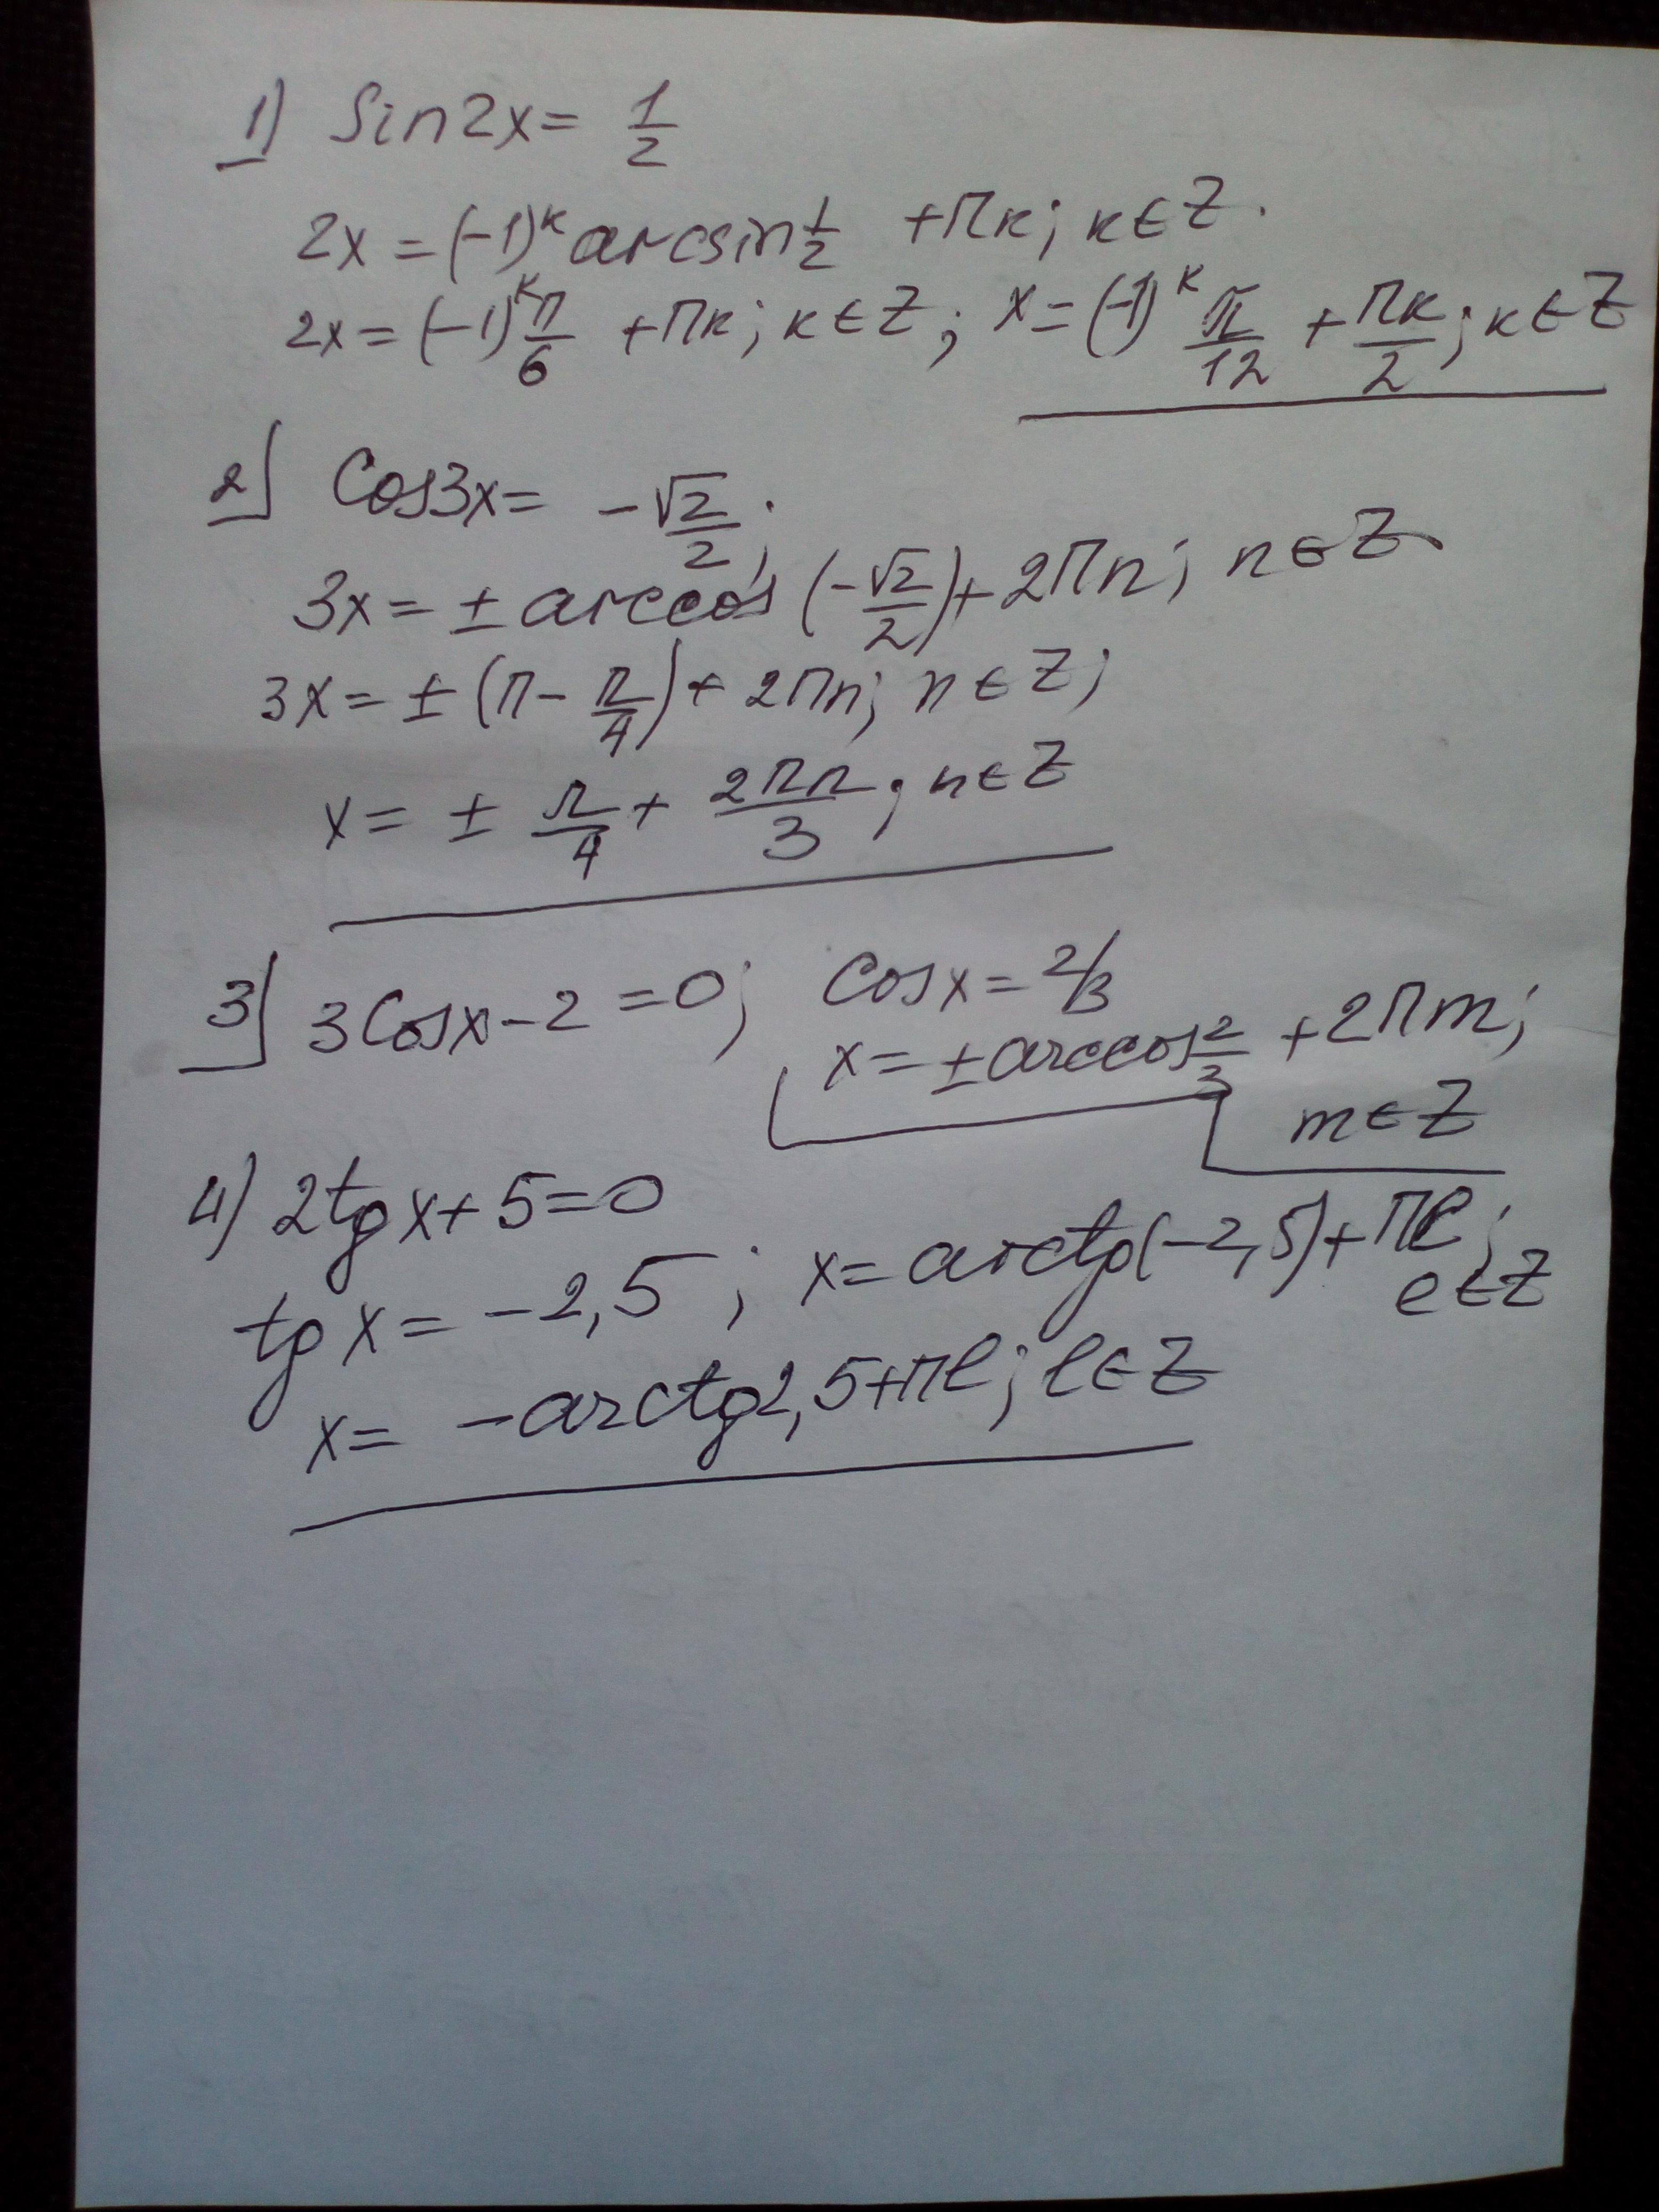 1) Sin2x = 1/2
2x = (-1)^к arcsin 1/2 + πк; к∈Z.
2x = (-1)^к π/6 + πк; к∈Z; x = (-1)^к π/12 + πк/2; к∈Z
2) Cos3x = -√2/2;
3x = ± arccos (-√2/2) + 2πn; n∈Z
3x = ± (π - π/4) + 2πn; n∈Z;
x = ± π/4 + 2πn/3; n∈Z
3) 3Cosx - 2 = 0; Cosx = 2/3
x = ± arccos 2/3 + 2πm;
m∈Z
4) 2tgx + 5 = 0
tgx = -2,5; x = arctg(-2,5) + πl;
l∈Z
x = -arctg2,5 + πl; l∈Z